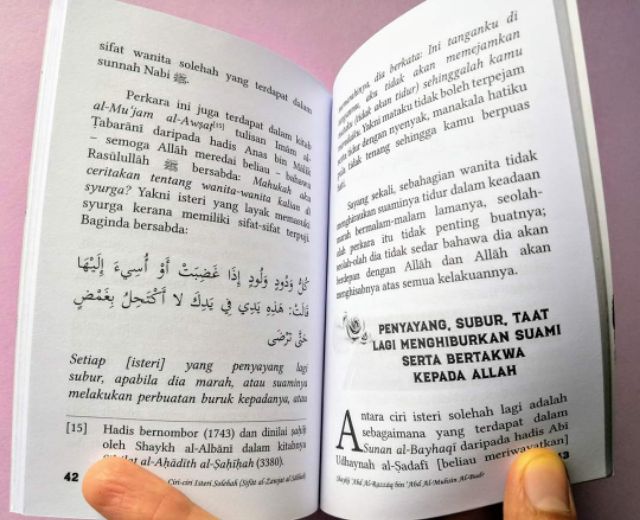 sifat wanita solehah yang terdapat dalam
sunnah Nabi ﷺ.
Perkara ini juga terdapat dalam kitab
al-Mu‘jam al-Awṣaṭ[15] tulisan Imām al-
Ṭabarānī daripada hadis Anas bin Mālik
– semoga Allāh meredai beliau – bahawa
Rasūlullāh ﷺ bersabda: Mahukah aku
ceritakan tentang wanita-wanita kalian di
syurga? Yakni isteri yang layak memasuki
syurga kerana memiliki sifat-sifat terpuji
Baginda bersabda:
كُلُّ وَدُودٍ وَلُودٍ إِذَا غَضِبَتْ أَوْ أُسِيءَ إِلَيْهَا
قَالَتْ: هَذِهِ يَدِي فِي يَدِكَ لَا أَكْتَحِلُ بِغَمْضٍ
حَتَّى تَرْضَى
Setiap [isteri] yang penyayang lagi
subur, apabila dia marah, atau suaminya
melakukan perbuatan buruk kepadanya, atau
[15] Hadis bernombor (1743) dan dinilai ṣaḥīḥ
oleh Shaykh al-Albānī dalam kitabnya
al-Aḥādīth al-Ṣaḥīḥah (3380).
42 Ciri-ciri Isteri Solehah (Ṣifāt al-Zawjat al-Ṣāliḥah)
dia berkata: Ini tanganku di
aku tidak akan memejamkan
(tidak akan tidur) sehinggalah kamu
Yakni mataku tidak boleh terpejam
tidur dengan nyenyak, manakala hatiku
tidak tenang sehingga kamu berpuas
hati.
Sayang sekali, sebahagian wanita tidak
menghiraukan suaminya tidur dalam keadaan
marah bermalam-malam lamanya, seolah-
olah perkara itu tidak penting buatnya;
seolah-olah dia tidak sedar bahawa dia akan
berdepan dengan Allāh dan Allāh akan
menghisabnya atas semua kelakuannya.
PENYAYANG, SUBUR, TAAT
LAGI MENGHIBURKAN SUAMI
SERTA BERTAKWA
KEPADA ALLAH
Antara ciri isteri solehah lagi adalah
sebagaimana yang terdapat dalam
Sunan al-Bayhaqī daripada hadis Abī
Udhaynah al-Ṣadafī [beliau meriwayatkan]
Shaykh ‘Abd Al-Razzāq bin ‘Abd Al-Muḥsin Al-Badr